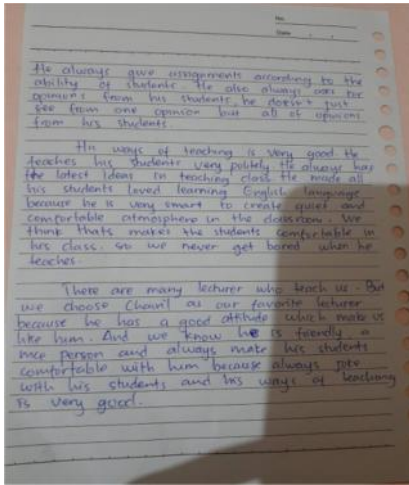 No.
Date
He always give assignments according to the
ability of students. He also always asks for
opinions from his students, he doesn't just
see from one opinion but all of opinions
from his students.
His ways of teaching is very good. He
teaches his students very politely. He always has
the latest ideas in teaching class. He made all
his students loved learning English language
because he is very smart to create quiet and
comfortable atmosphere in the classroom. We
think thats makes the students comfortable in
his class. so we never get bored when he
teaches.
There are many lecturer who teach us. But
we choose as our favorite lecturer
because he has a good attitude which make us
like him. And we know he is friendly a
nice person and always make his students
comfortable with him because always joke
with his students and his ways of teaching
is very good.